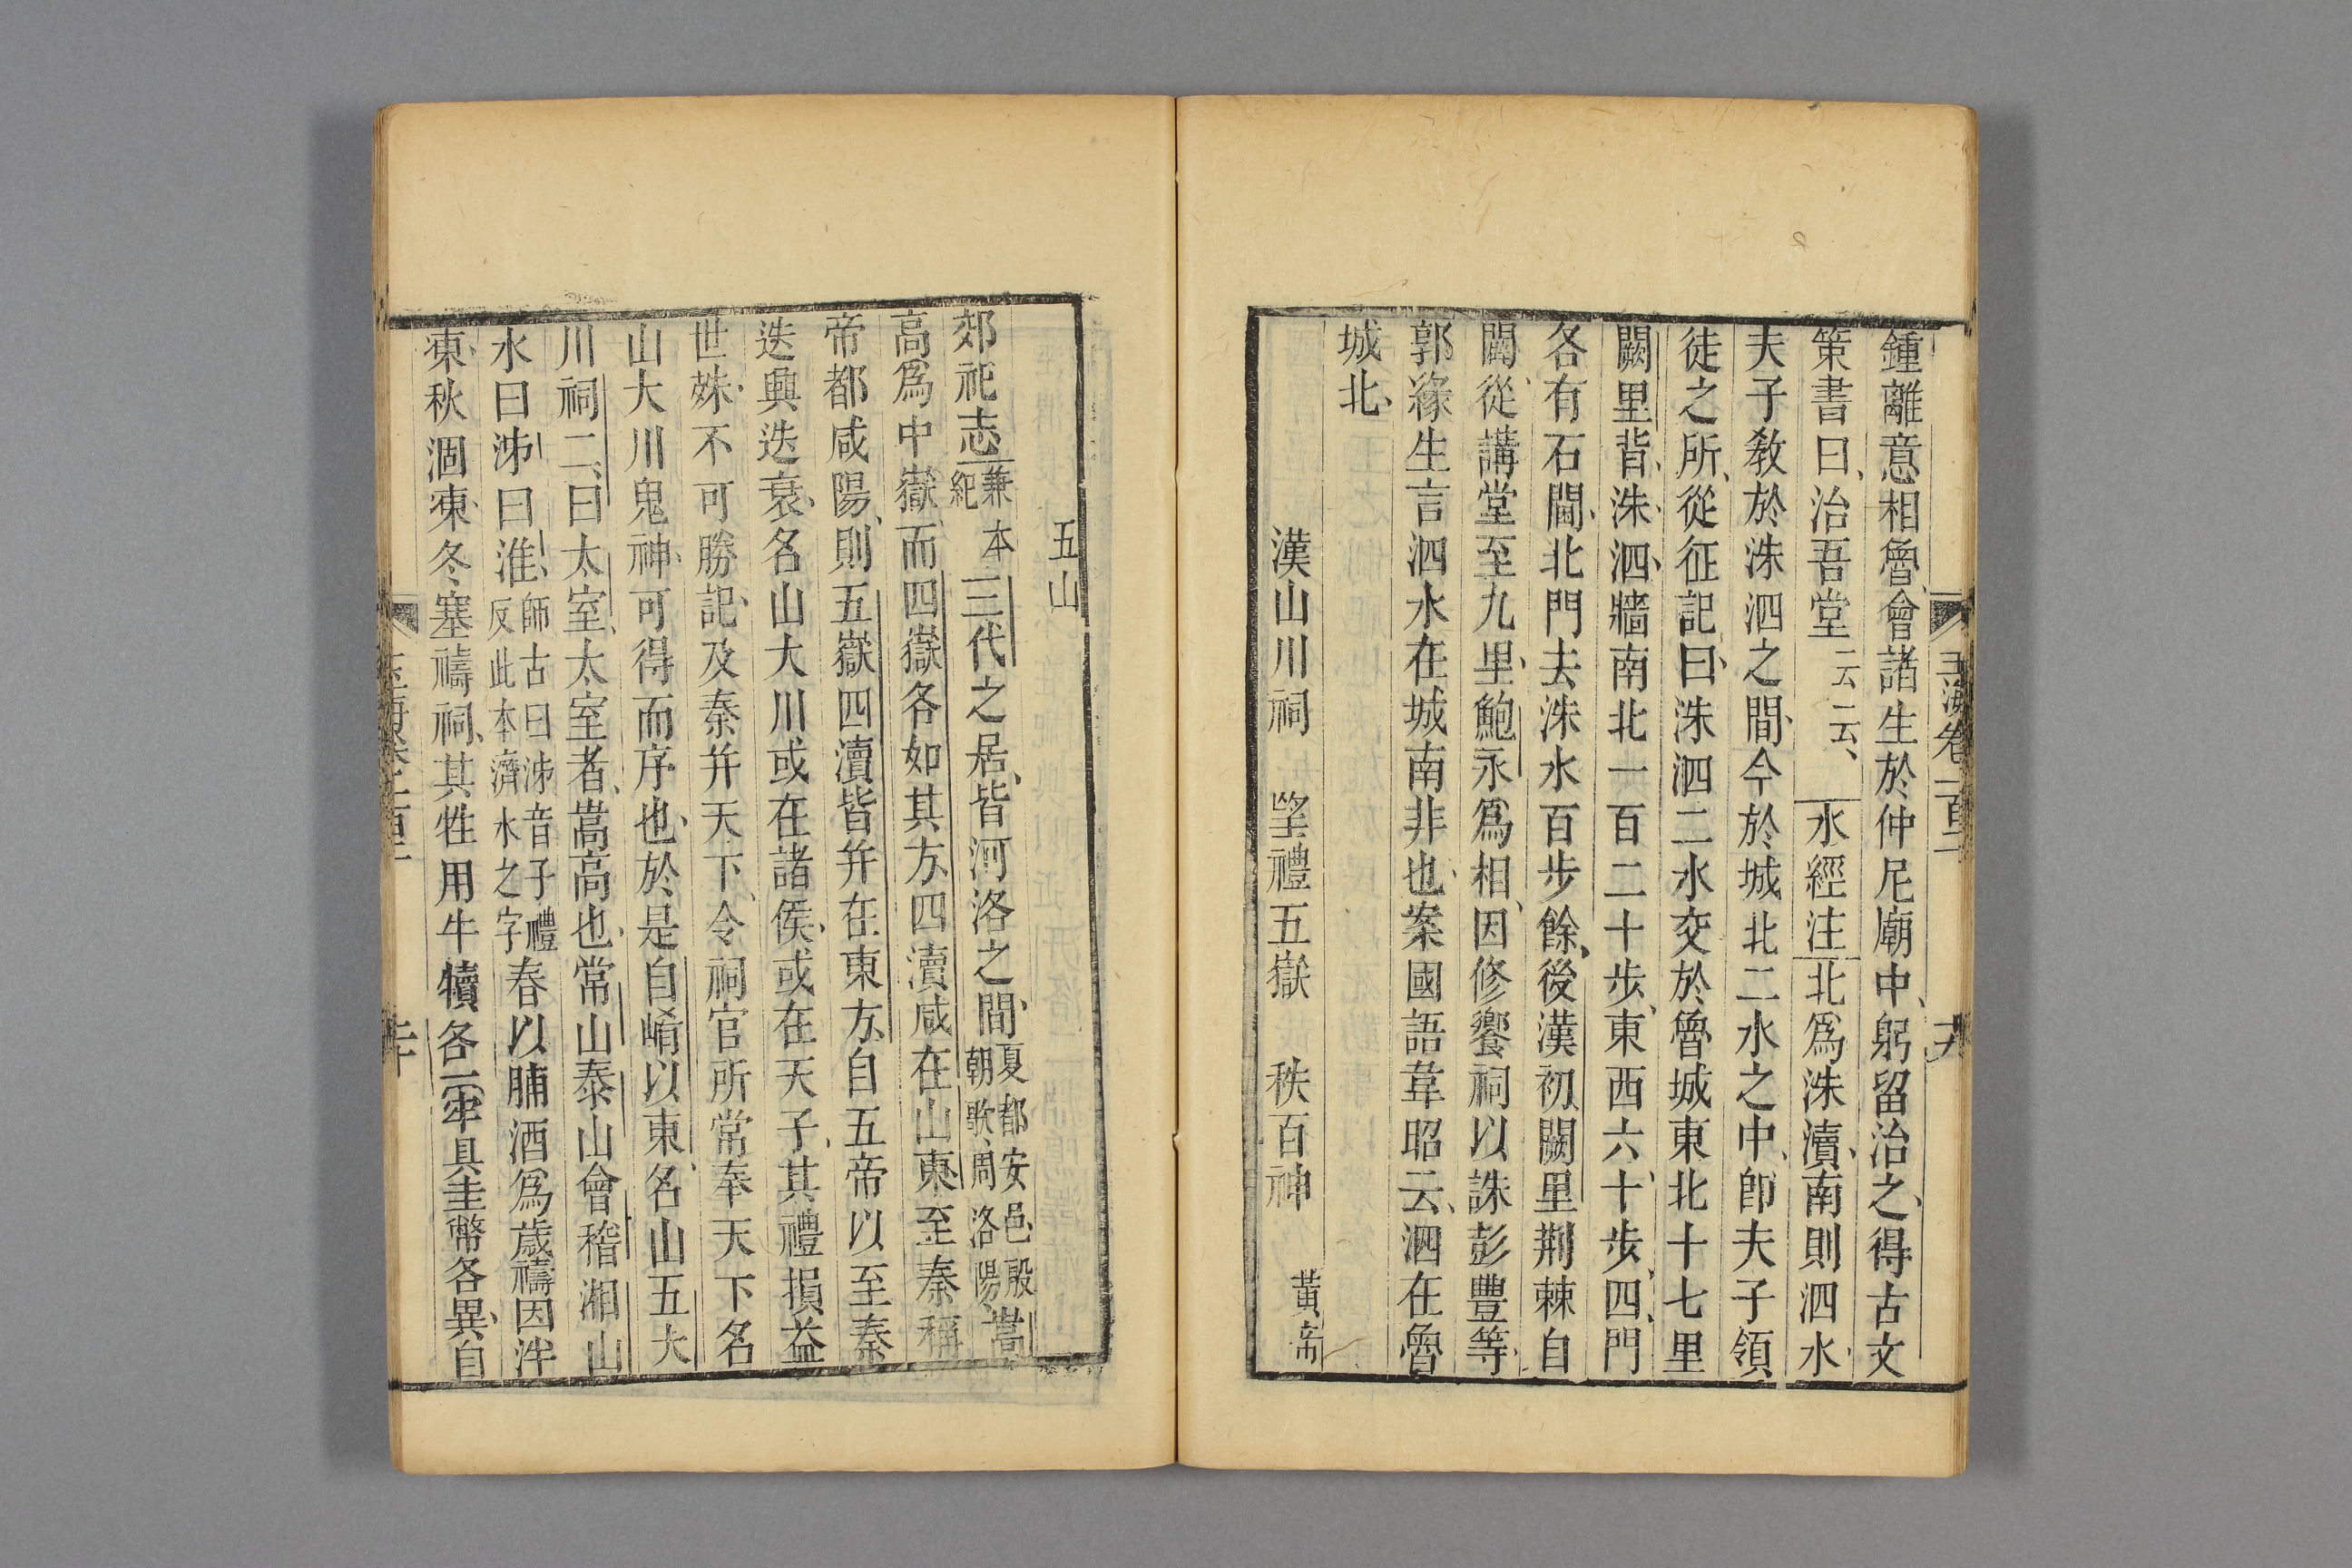 玉海卷一百二
鍾離意相魯會諸生於仲尼廟中躬留治之得古文
策書曰治吾堂云云水經注北爲洙瀆南則泗水
夫子教於洙泗之間今於城北二水之中卽夫子領
徒之所從征記曰洙泗二水交於魯城東北十七里
闕里背洙泗牆南北一百二十步東西六十步四門
各有石閫北門去洙水百步餘後漢初闕里荆棘自
闢從講堂至九里鮑永爲相因修饗祠以誅彭豐等
郭緣生言泗水在城南非也案國語韋昭云泗在魯
城北
漢山川祠　望禮五嶽　秩百神　黃帝
五山
郊祀志兼本紀三代之居皆河洛之間夏都安邑殷朝歌周洛陽嵩
高爲中嶽而四嶽各如其方四瀆咸在山東至秦稱
帝都咸陽則五嶽四瀆皆并在東方自五帝以至秦
迭興迭衰名山大川或在諸侯或在天子其禮損益
世殊不可勝記及秦并天下令祠官所常奉天下名
山大川鬼神可得而序也於是自崤以東名山五大
川祠二曰太室太室者嵩高也常山泰山會稽湘山
水曰泲曰淮師古曰泲音子禮反此本濟水之字春以脯酒爲歲禱因泮
凍秋涸凍冬塞禱祠其牲用牛犢各一牢具圭幣各異自